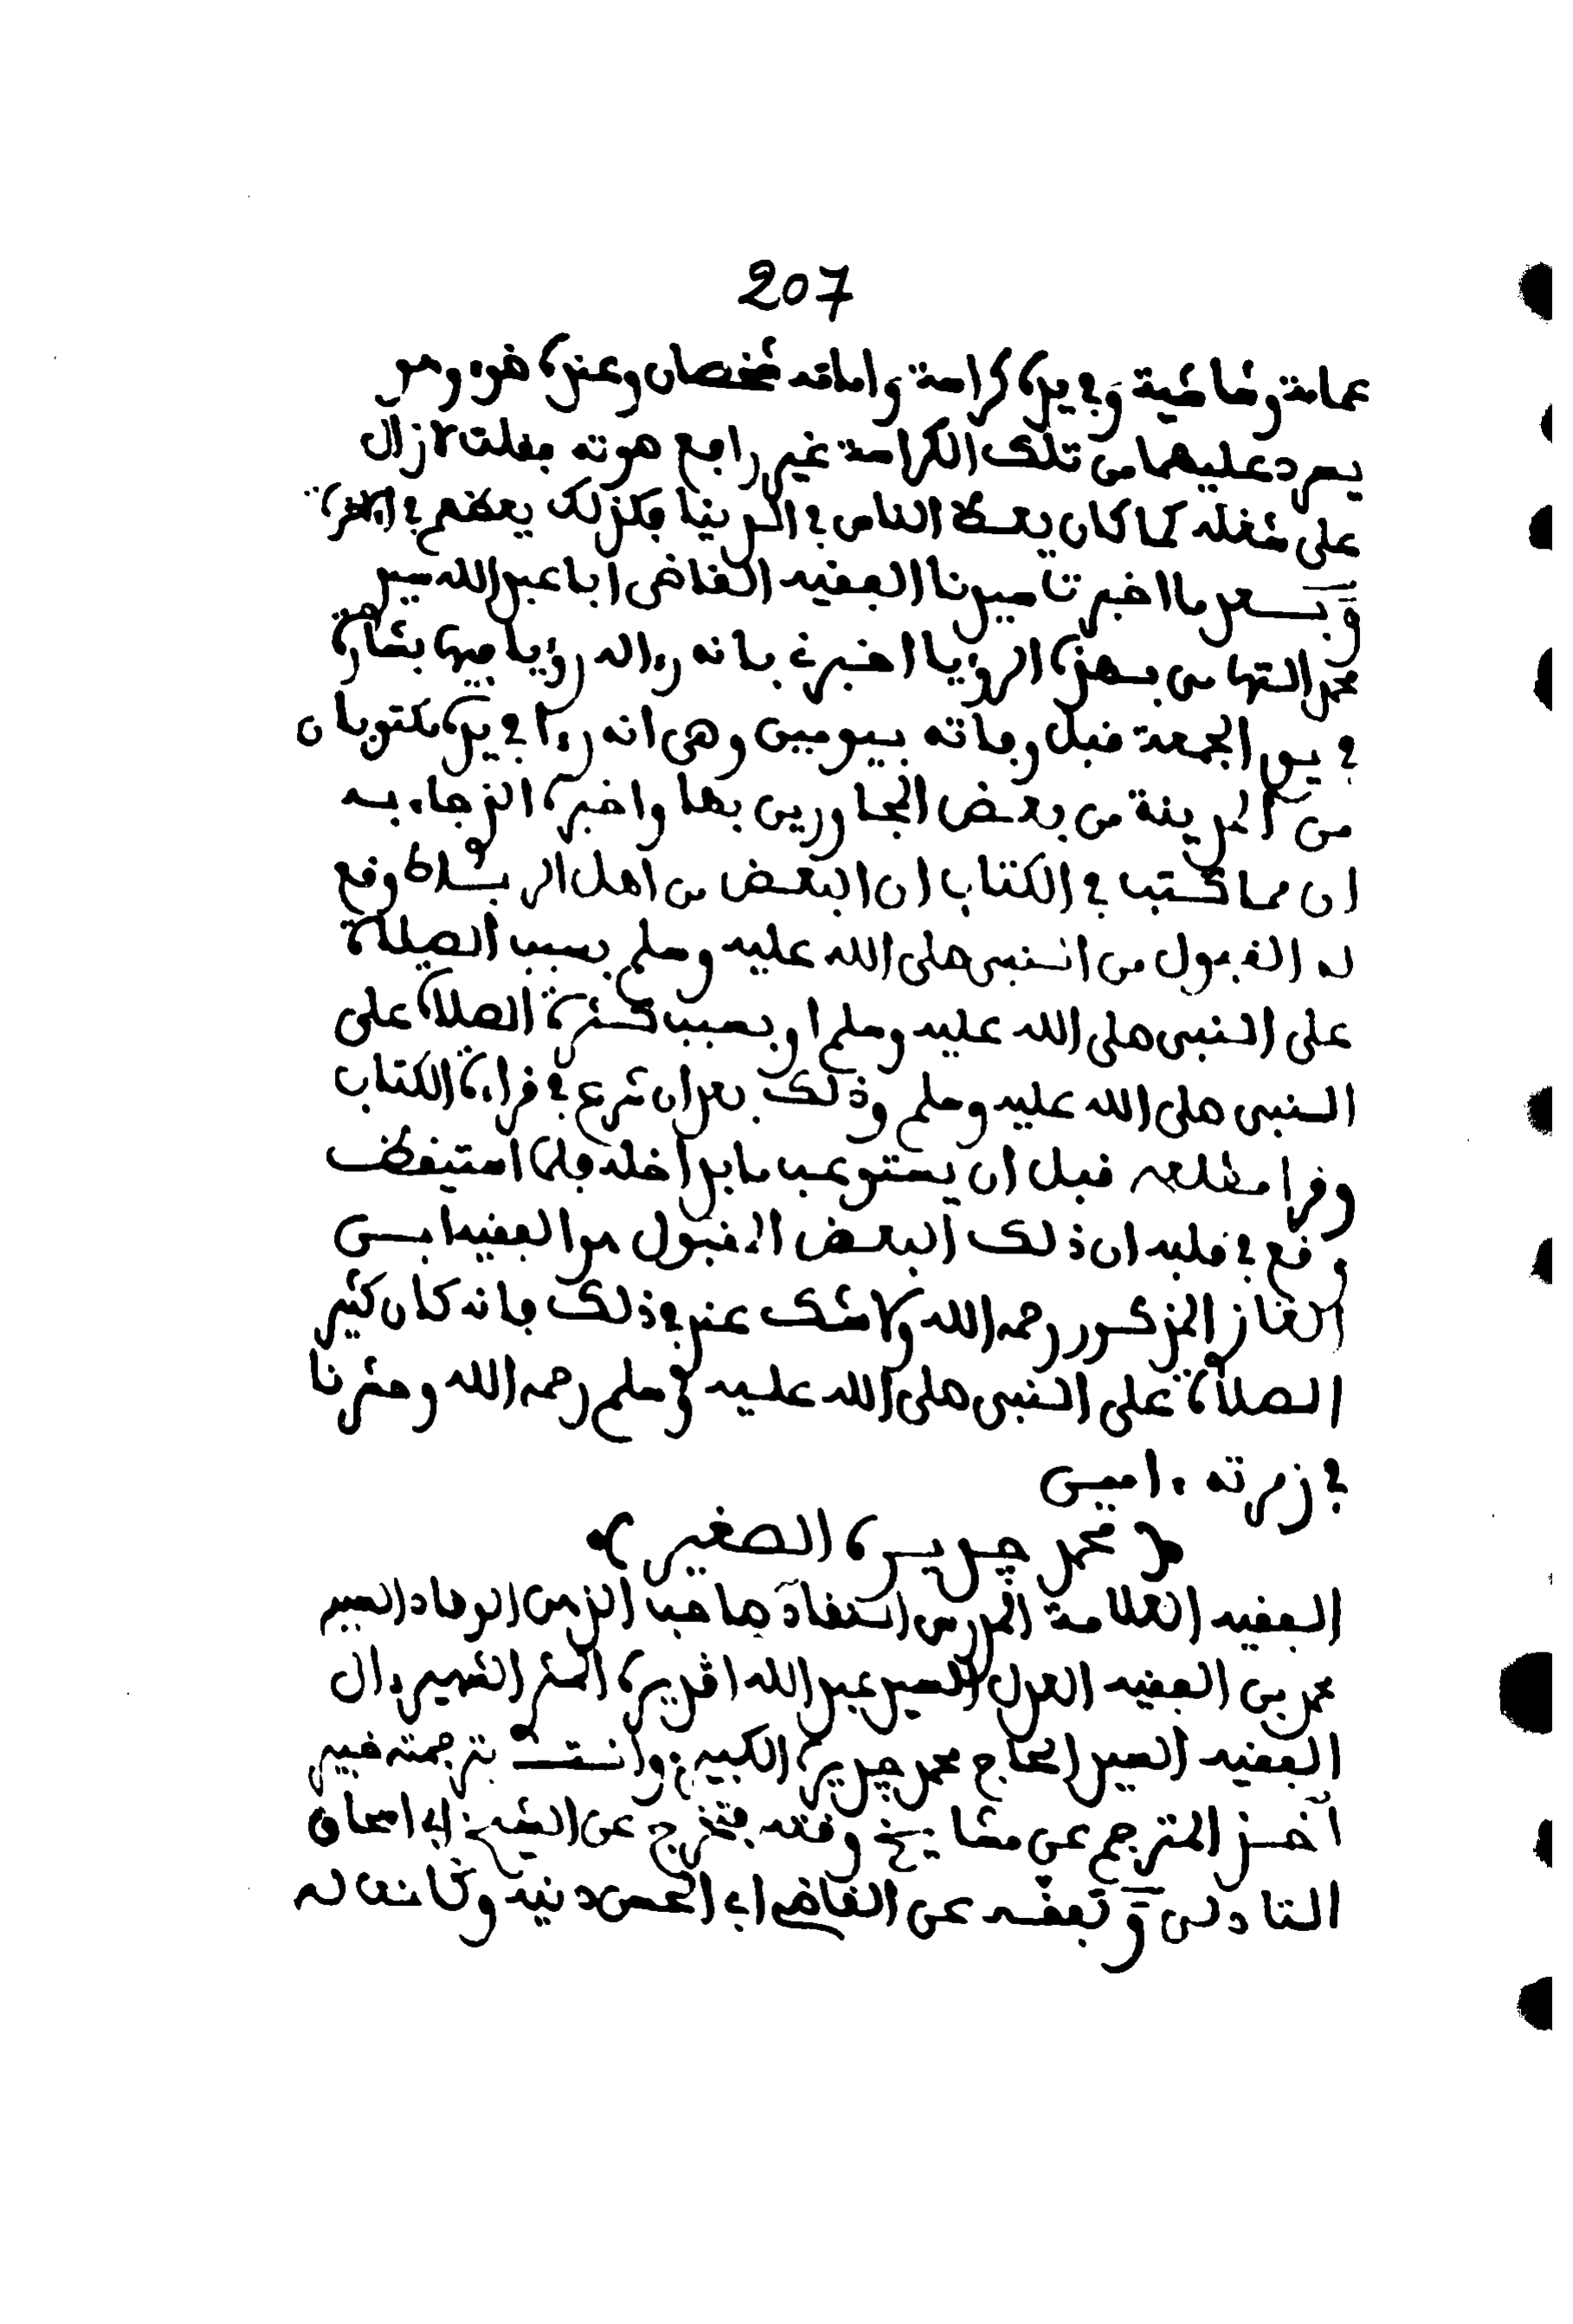 207
عمامة وشاشية وفي يده كراسة وامامه شخصان وعنده ضوء وهو
يسرد عليهما من تلك الكراسة غير رافع صوته فقلت لازال
على شغله كما كان يعظ الناس في الدنيا فكذلك يعظهم في الاخرة
وبعد ما اخبرت سيدنا الفقيه القاضي ابا عبد الله سيد
محمد التهامي بهذه الرؤيا اخبرني بانه رءا له رؤيا فيها بشارة
في يوم الجمعة قبل وفاته بيومين وهي انه رءا في يده مكتوبا
من المدينة من بعض المجاورين بها واخبره الذي جاء به
ان مما كتب في الكتاب ان البعض من اهل الرباط وقع
له القبول من النبي صلى الله عليه وسلم بسبب الصلاة
على النبي صلى الله عليه وسلم او بسبب كثرة الصلاة على
النبي صلى الله عليه وسلم وذلك بعد ان شرع في قراءة الكتاب
وقرا مطلعه قبل ان يستوعب ما بداخله فلما استيقظ
وقع في قلبه ان ذلك البعض المقبول هو الفقيه ابن
الغاز المذكور رحمه الله ولا شك عندي في ذلك فانه كان كثير
الصلاة على النبي صلى الله عليه وسلم رحمه الله وحشرنا
في زمرته ءامين
﴿ محمد جديرة الصغير ﴾
الفقيه العلامة المدرس النفاد صاحب الذهن الوقاد السيد
محمد بن الفقيه العدل السيد عبد الله اڤديرة الشهير ءال
الفقيه السيد الحاج محمد جديرة الكبير وانت بترجمته خبير
اخذ المترجم عن مشايخ وقته فتخرج عن الشيخ ابي اسحاق
التادلي وتفقه عن القاضي ابي الحسن دنيه وكانت له